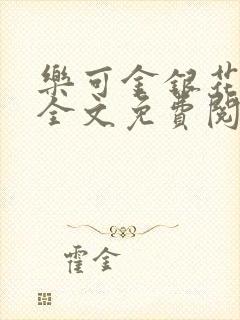 樂可金銀花
全文免費閱
霍金